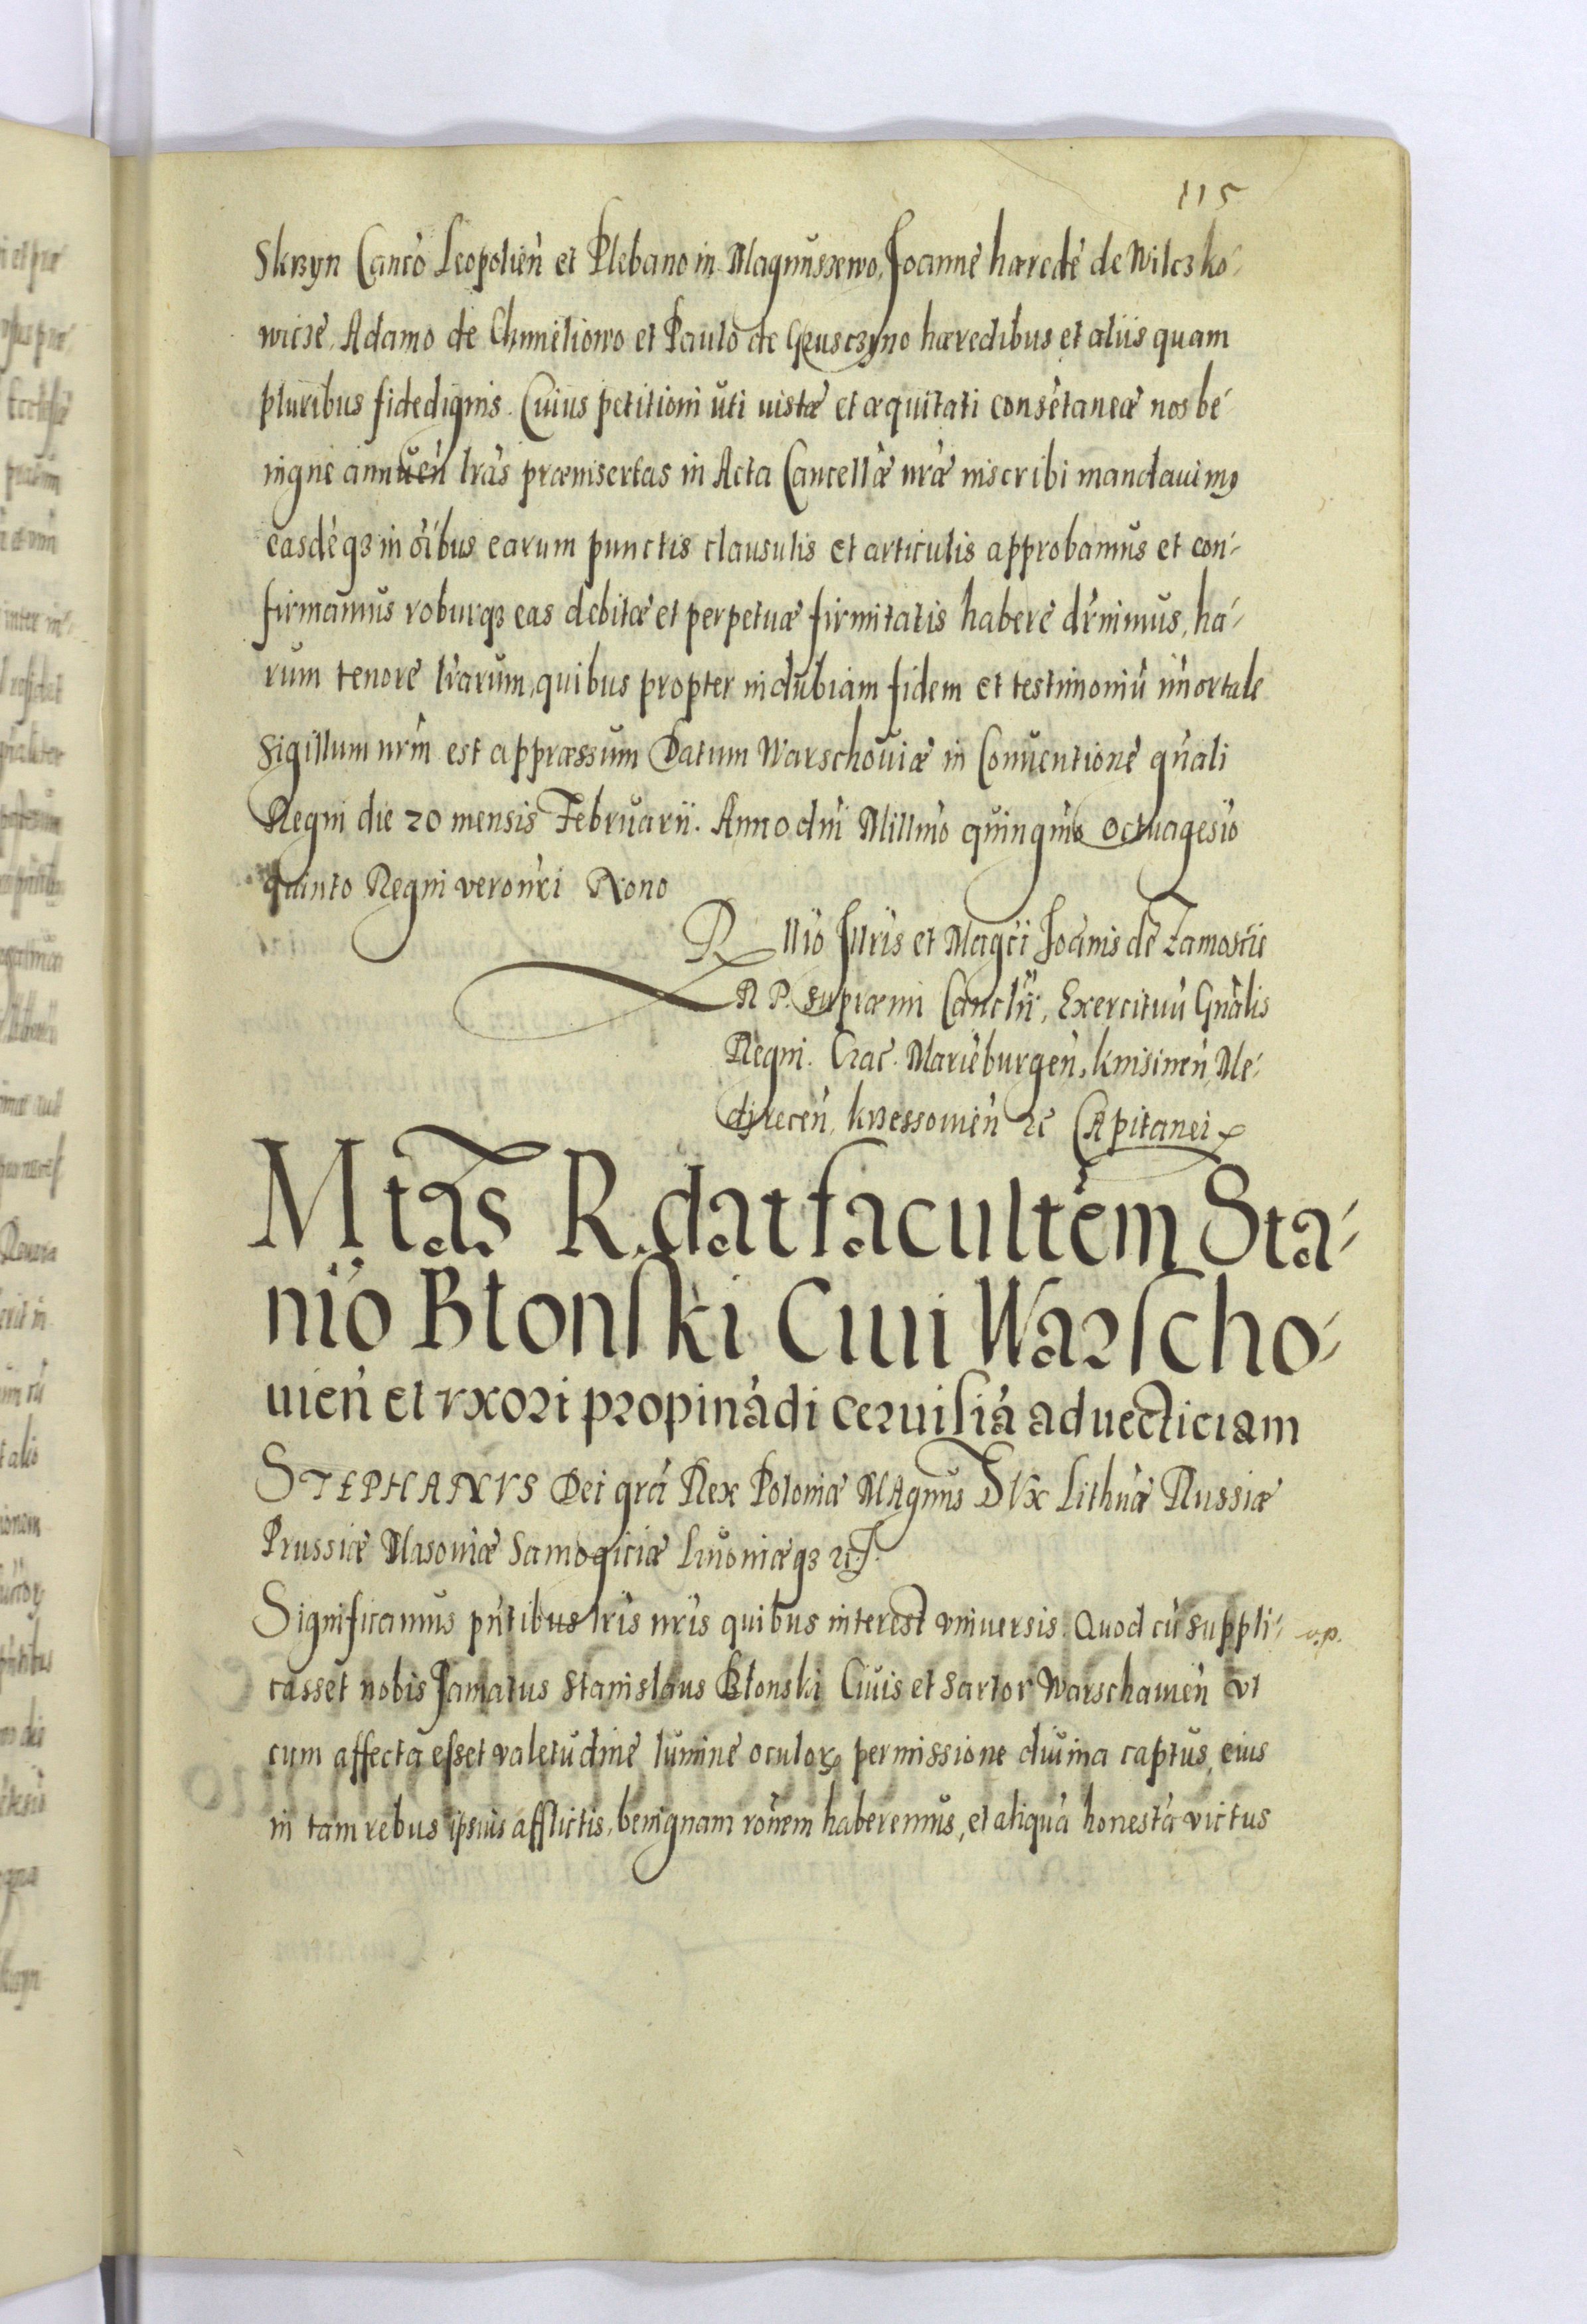 115
Skrzyn Canco Leopolien et Plebano in Magnuszewo, Joanne hærede de Wilczko-
wicze, Adamo de Chmeliowo et Paulo de Gruszczyno hæredibus et aliis quam
pluribus fidedignis. Cuius petitioni uti iustæ et æquitati consetaneæ nos be-
nigne annuen lras præinsertas in Acta Cancellæ nræ inscribi mandauimꝰ
easdeqꝫ in oibus earum punctis clausulis et articulis approbamus et con-
firmamus roburqꝫ eas debitæ et perpetuæ firmitatis habere drnimus, ha-
rum tenore lrarum, quibus propter indubiam fidem et testimoniu imortale
sigillum nrm est appræssum Datum Warschouiæ in Conuentione gnali
Regni die 20 mensis Februarii. Anno dni Millmo quingmo octuagesio
quinto Regni vero nri Nono
Rllio Illris et Magci Joanis de Zamoscie
R P. supræmi Cancl͂r, Exercituu Gnalis
Regni. Crac. Marieburgen, knisinen, Me-
direcen, krzessouien ꝛc Capitanei
Mtas R. dat facultem Sta-
nio Błonſki Ciui Warſcho-
uien et vxori propinadi ceruiſia aduecticiam
STEPHANVS Dei gra Rex Poloniæ MAgnus DVx Lithuæ Russiæ
Prussiæ Masoniæ Samogitiæ Liuoniæqꝫ ꝛc.
Significamus pntibus lris nris quibus interest vniuersis. Quod cu suppli- v.p.
casset nobis Famatus Stanislaus Błonski Ciuis et sartor Warschauien vt
cum affecta eſset valetudine lumine oculoꝝ permissione diuina captus, eius
in tam rebus ipsius afflictis, benignam ronem haberemus, et aliqua honesta victus